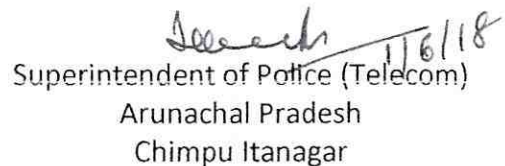 1/6/18
Superintendent of Police (Telecom)
Arunachal Pradesh
Chimpu Itanagar